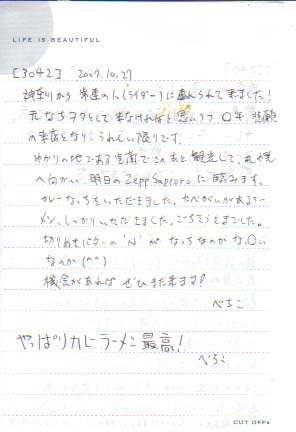 LIFE IS BEAUTIFUL
[3042] 2007.10.27
神奈川から常連の人(ライダー)に連れられて来ました!
元なちヲタとして来なければと思いつつ〇年、悲願
の来店となり、うれしい限りです。
ゆかりの地である室蘭でこのあと観光して、札幌
へ向かい、明日のZepp Sapporoに臨みます。
カレーなっちをいただきました。たべがいがあるラー
メン、しっかりいただきました。ごちそうさまでした。
切り抜き の“N”が なっちなのかな、〇い
なのか(^^)
機会があれば ぜひまた来ます!
べちこ
やっぱりカレーラーメン最高!
べちこ
CUT OFF▸